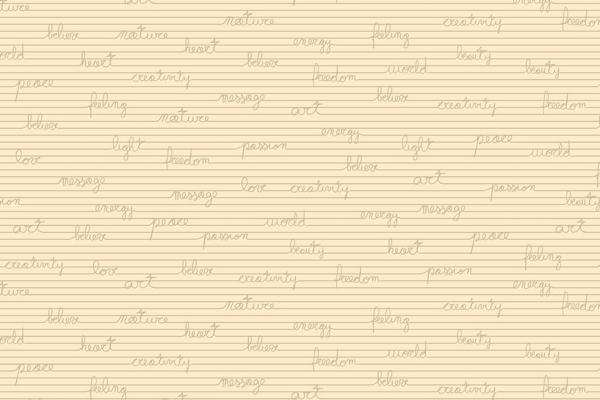 art energy
nature creativity freedom
believe nature energy feeling
heart beauty
world heart believe world beauty
peace creativity freedom
feeling message art believe creativity freedom
believe nature energy
light passion light peace
love freedom believe world
message message love creativity art passion
energy peace world energy message beauty
art believe passion peace art
beauty heart feeling
creativity love believe creativity freedom passion
art energy
nature creativity freedom
believe nature energy feeling
heart beauty
world heart believe world beauty
peace creativity freedom
feeling message art believe creativity freedom